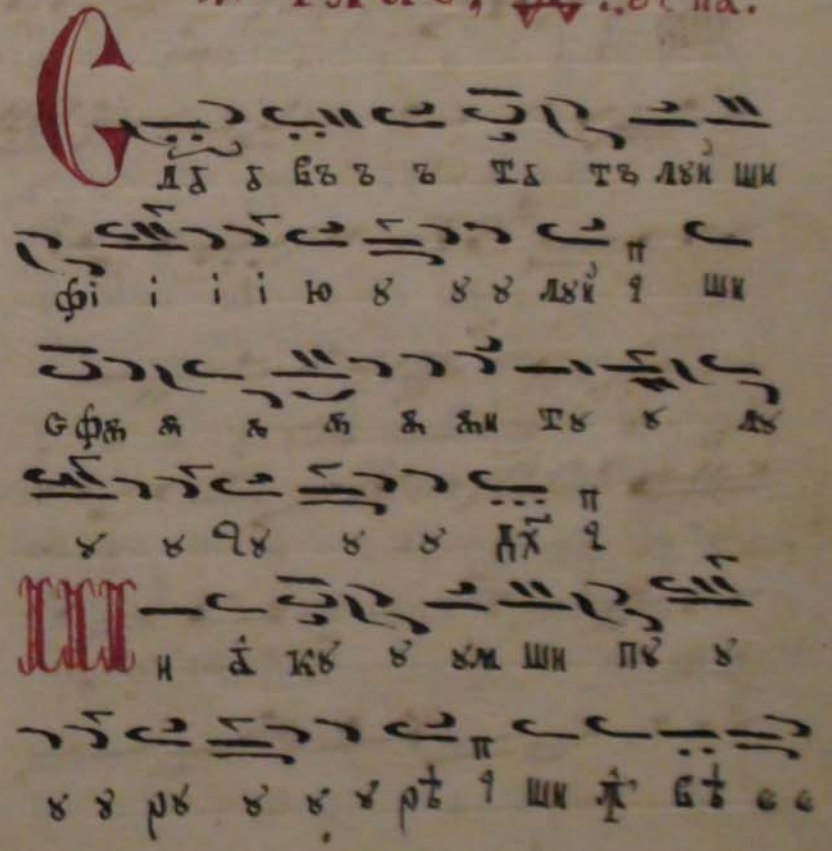 Слъ ъ въ ъ ъ тъ тъ лꙋй ши
фі і і і ю ꙋ ꙋ ꙋ лꙋй п ҁ ши
сфѫ ѫ ѫ ѫ ѫ ѫн тꙋ ꙋ лꙋ
ꙋ ꙋ ꙋ ꙋ дх п ҁ
Ши а кꙋ ꙋ ꙋм ши пꙋ ꙋ
ꙋ ꙋ рꙋ ꙋ ꙋ ꙋ рѣ п ҁ ши ꙟ вѣ е е